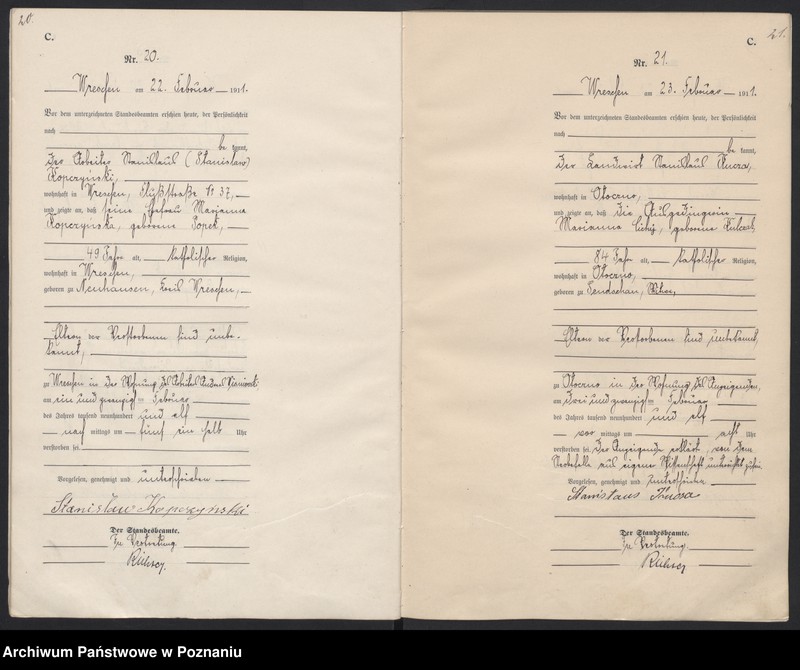 20.
C.
Nr. 20.
Wreschen am 22. Februar 1911.
Vor dem unterzeichneten Standesbeamten erschien heute, der Persönlichkeit
nach
be kannt,
der Arbeiter Stanislaus (Stanislaw)
Kopczyński,
wohnhaft in Wreschen, Flußstraße № 37,
und zeigte an, daß seine Ehefrau Marianna
Kopczyńska, geborene
49 Jahre alt, katholischer Religion,
wohnhaft in Wreschen,
geboren zu Neuhausen, Kreis Wreschen,
Eltern der Verstorbenen sind unbe-
kannt,
zu Wreschen in der Wohnung des Arbeiters
am ein und zwanzigsten Februar
des Jahres tausend neunhundert und elf
nach mittags um fünf ein halb Uhr
verstorben sei.
Vorgelesen, genehmigt und unterschrieben
Stanisław Kopczyński
Der Standesbeamte.
In Vertretung.
21.
C.
Nr. 21.
Wreschen am 23. Februar 1911.
Vor dem unterzeichneten Standesbeamten erschien heute, der Persönlichkeit
nach
be kannt,
der Landwirt Stanislaus
wohnhaft in Otoczno,
und zeigte an, daß die Ausgedingerin
Marianna geborene
84 Jahre alt, katholischer Religion,
wohnhaft in Otoczno,
geboren zu
Eltern der Verstorbenen sind unbekannt,
zu Otoczno in der Wohnung des Anzeigenden,
am drei und zwanzigsten Februar
des Jahres tausend neunhundert und elf
vor mittags um acht Uhr
verstorben sei. Der Anzeigende erklärt, von dem
Sterbefalle aus eigener Wissenschaft unterrichtet zu sein.
Vorgelesen, genehmigt und unterschrieben
Stanislaus
Der Standesbeamte.
In Vertretung.
Archiwum Państwowe w Poznaniu